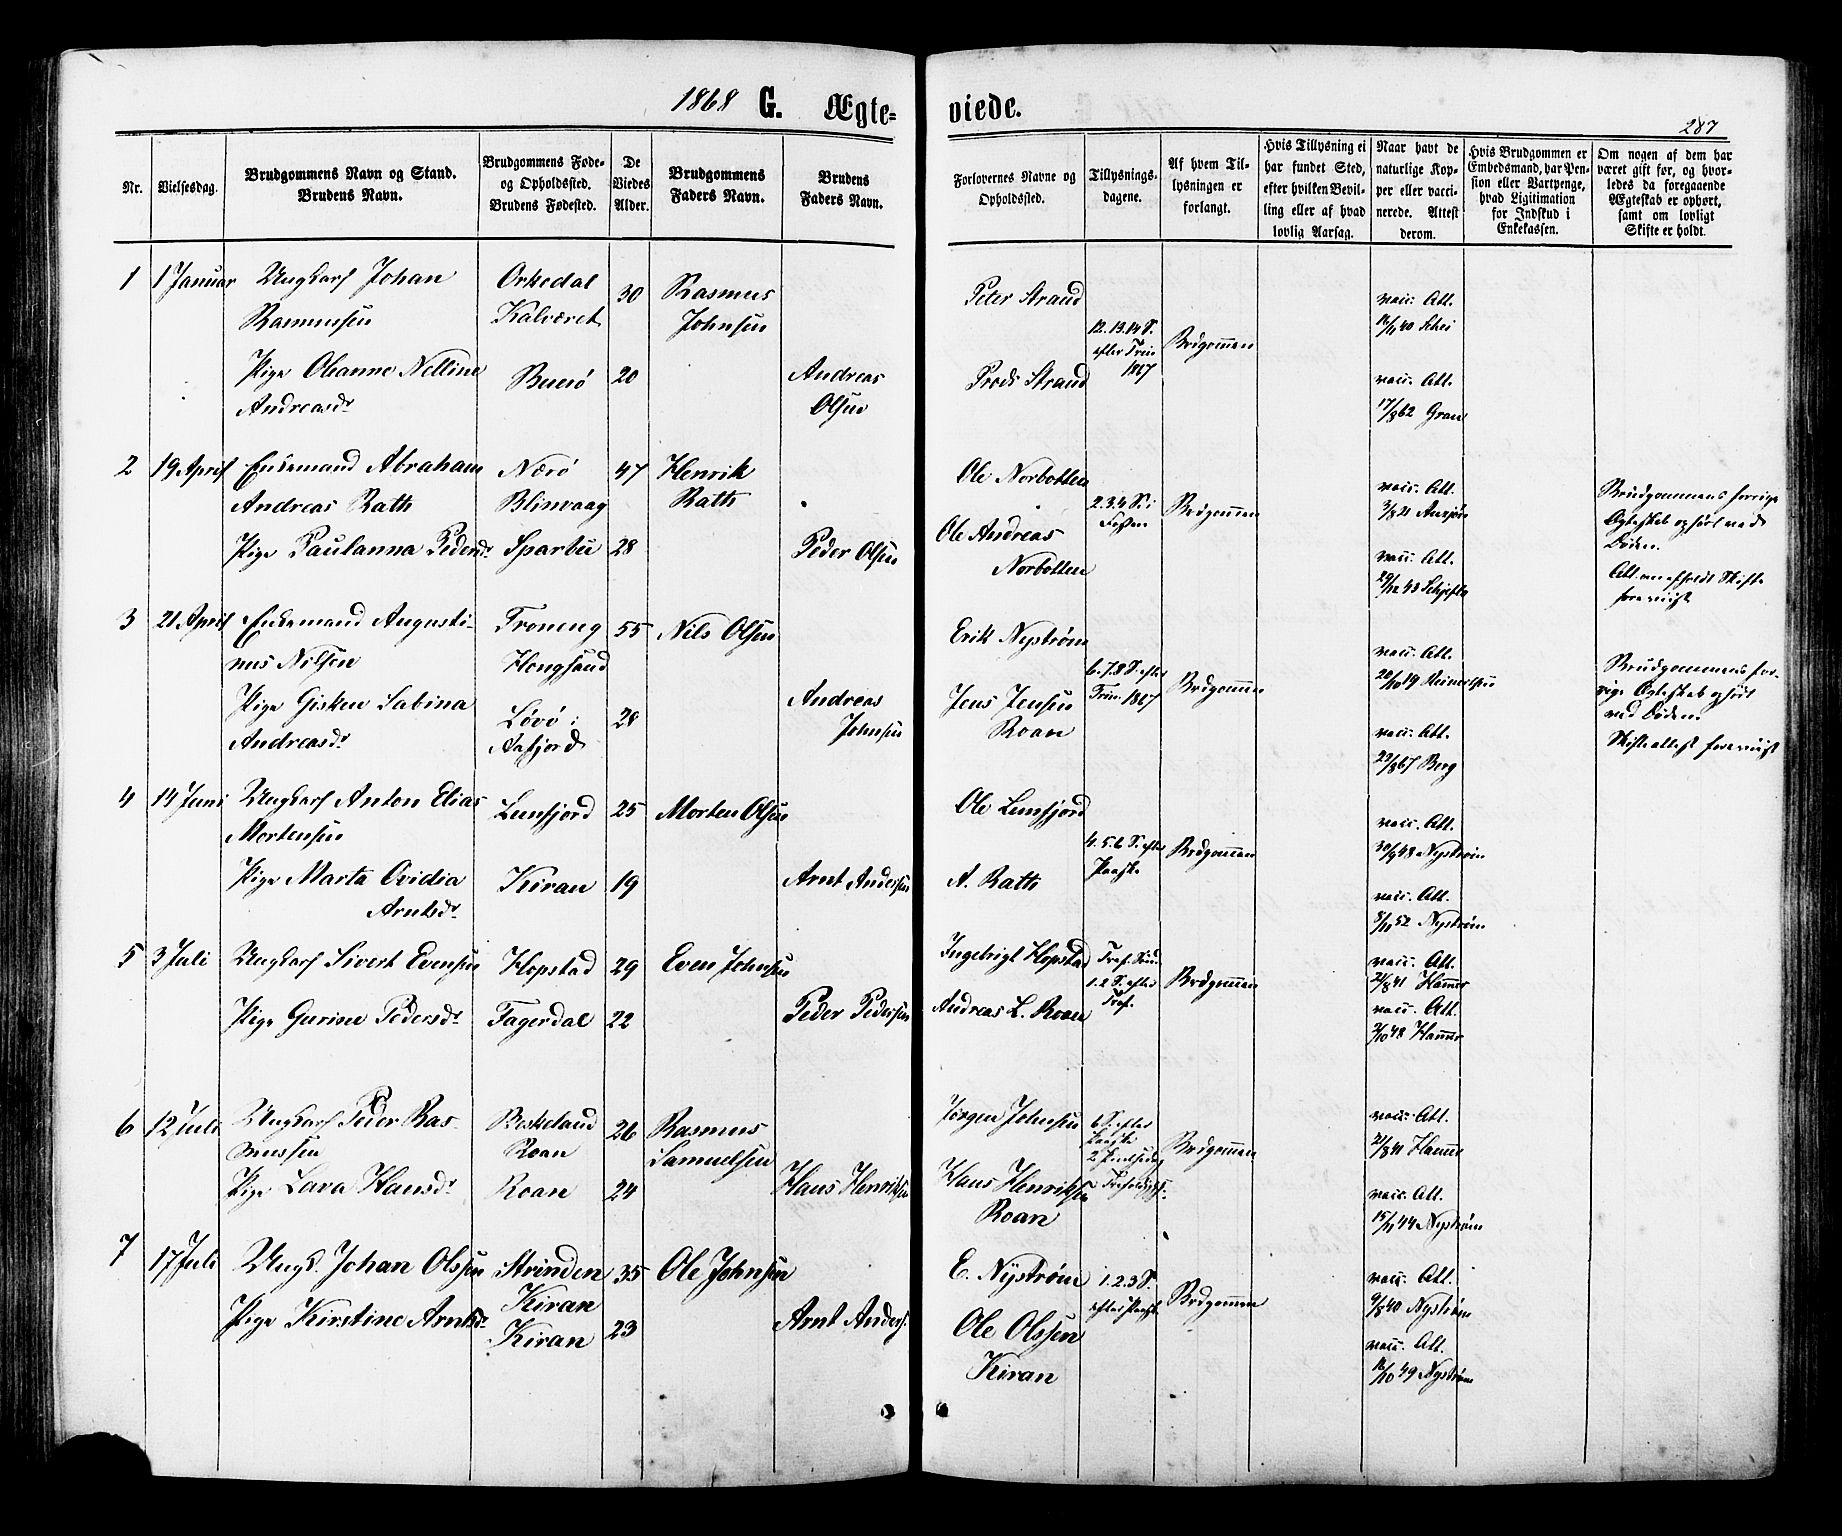 1868 G. Ægte-
viede.
287
Nr.
Vielsesdag.
Brudgommens Navn og Stand.
Brudens Navn.
Brudgommens Føde-
og Opholdssted.
Brudens Fødested.
De
Viedes
Alder.
Brudgommens
Faders Navn.
Brudens
Faders Navn.
Forlovernes Navne og
Opholdssted.
Tillysnings-
dagene.
Af hvem Til-
lysningen er
forlangt.
Hvis Tillysning ei
har fundet Sted,
efter hvilken Bevil-
ling eller af hvad
lovlig Aarsag.
Naar havt de
naturlige Kop-
per eller vacci-
nerede. Attest
derom.
Hvis Brudgommen er
Embedsmand, har Pen-
sion eller Vartpenge,
hvad Legitimation
for Indskud i
Enkekassen.
Om nogen af dem har
været gift før, og hvor-
ledes da foregaaende
Ægteskab er ophørt,
samt om lovligt
Skifte er holdt.
1 1 Januar Ungkarl Johan Orkedal 30 Rasmus
Rasmussen Kalværet Johnsen
Pige Oleanne Nelline Buerö 20 Andreas
Andreasdr Olsen
Peter Strand
12.13.14 S.
efter Trin
1867
Brdgommen
vacc. Att.
16/11 40 Schei
Strand
vacc. Att.
17/8 62 Gran
2 19 April Enkemand Abraham Nærö 47 Henrik
Andreas Rath Blinvaag Rath
Pige Paulanna Pedersdr Sparbu 28 Peder Olsen
Ole Norbotten
2.3.4 S. i
Fasten
Brdgommen
vacc. Att.
Ole Andreas
Norbotten
vacc. Att.
Brudgommens forrige
Ægteskab ophört ved
Döden.
Att. om afholdt Skifte
forevist
3 21 April Enkemand Augusti- 55 Nils Olsen
nus Nilsen Hongsand
Pige Gisken Sabina Lövö i 28 Andreas
Andreasdr Aafjord Johnsen
Erik Nyström
6.7.8 S. efter
Trin 1867
Brdgommen
vacc. Att.
Jens Jensen
Roan
vacc. Att.
29/8 67 Berg
Brudgommens for-
rige Ægteskab ophört
ved Döden.
Skifteattest forevist
4 14 Juni Ungkarl Anton Elias Lunfjord 25 Morten Olsen
Mortensen
Pige Marta Ovidia Kiran 19 Arnt Andersen
Arntsdr
Ole Lunfjord
4.5.6 S. efter
Paaske
Brdgommen
vacc. Att.
30/9 48 Nyström
A. Rath
vacc. Att.
8/11 52 Nyström
5 3 Juli Ungkarl Sivert Evensen Hopstad 29 Even Johnsen
Pige Gurine Pedersdr Fagerdal 22 Peder Pedersen
Ingebrigt Hopstad
1.2 S. efter
Tref.
Brdgommen
vacc. Att.
21/8 41 Hammer
Andreas L. Roan
vacc. Att.
2/10 48 Hammer
6 12 Juli Ungkarl Peder Ras- Beskeland 26 Rasmus
mussen Roan Samuelsen
Pige Lava Hansdr Roan 24 Hans Henriksen
Jörgen Johnsen
6 S. efter
Paaske
Brdgommen
vacc. Att.
21/8 41 Hammer
Hans Henriksen
Roan
vacc. Att.
15/11 44 Nyström
7 17 Juli Ungk. Johan Olssen Strinden 35 Ole Johnsen
Kiran
Pige Kirstine Arntsdr Kiran 23 Arnt Anders.
E. Nyström
1.2.3 S.
efter Paaske
Brdgommen
vacc. Att.
9/8 40 Nyström
Ole Olssen
Kiran
vacc. Att.
16/10 49 Nyström